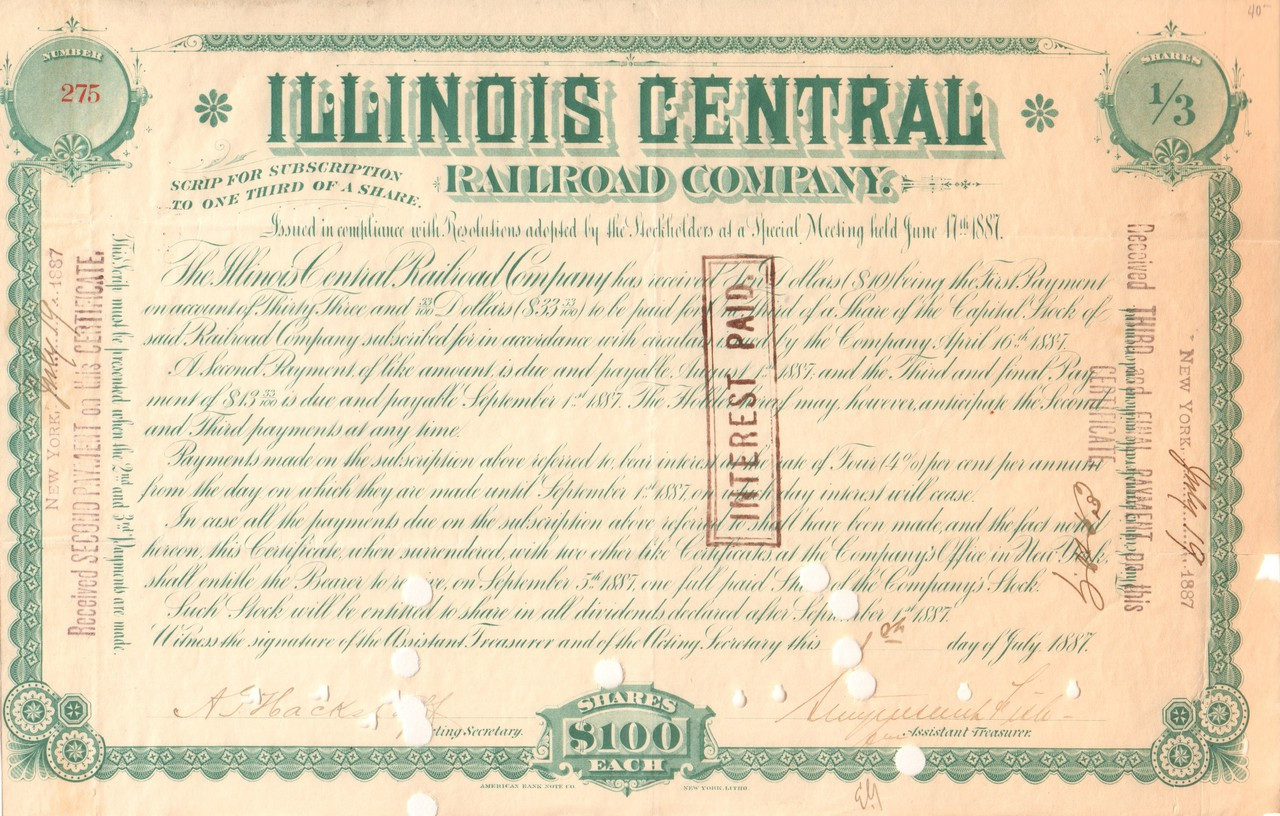 40-
NUMBER
275
SHARES
1/3
ILLINOIS CENTRAL
RAILROAD COMPANY.
SCRIP FOR SUBSCRIPTION
TO ONE THIRD OF A SHARE.
Issued in compliance with Resolutions adopted by the Stockholders at a Special Meeting held June 17th 1887.
The Illinois Central Railroad Company has received Dollars ($10) being the First Payment
on account of Thirty Three and 33/100 Dollars ($33 33/100) to be paid for of a Share of the Capital Stock of
said Railroad Company subscribed for in accordance with circular by the Company April 16th 1887.
A Second Payment of like amount is due and payable August 1st 1887 and the Third and final Pay-
ment of $13 33/100 is due and payable September 1st 1887. The Holder hereof may, however, anticipate the Second
and Third payments at any time.
Payments made on the subscription above referred to, bear interest at the rate of Four (4%) per cent per annum
from the day on which they are made until September 1st 1887, on which day interest will cease.
In case all the payments due on the subscription above referred to shall have been made, and the fact noted
hereon, this Certificate, when surrendered, with two other like Certificates at the Company's Office in New York,
shall entitle the Bearer to receive, on September 5th 1887, one full paid Share of the Company's Stock.
Such Stock will be entitled to share in all dividends declared after September 1st 1887.
Witness the signature of the Assistant Treasurer and of the Acting Secretary this 1st day of July 1887.
INTEREST PAID.
NEW YORK, July 19 1887
Received SECOND PAYMENT on this CERTIFICATE.
This Scrip must be presented when the 2nd and 3rd Payments are made.
Received THIRD and FINAL PAYMENT on this
CERTIFICATE
NEW YORK, July 19 1887
A. G. Hackstaff
Acting Secretary.
Stuyvesant Fish
Assistant Treasurer.
SHARES
$100
EACH
AMERICAN BANK NOTE CO. NEW YORK, LITHO.